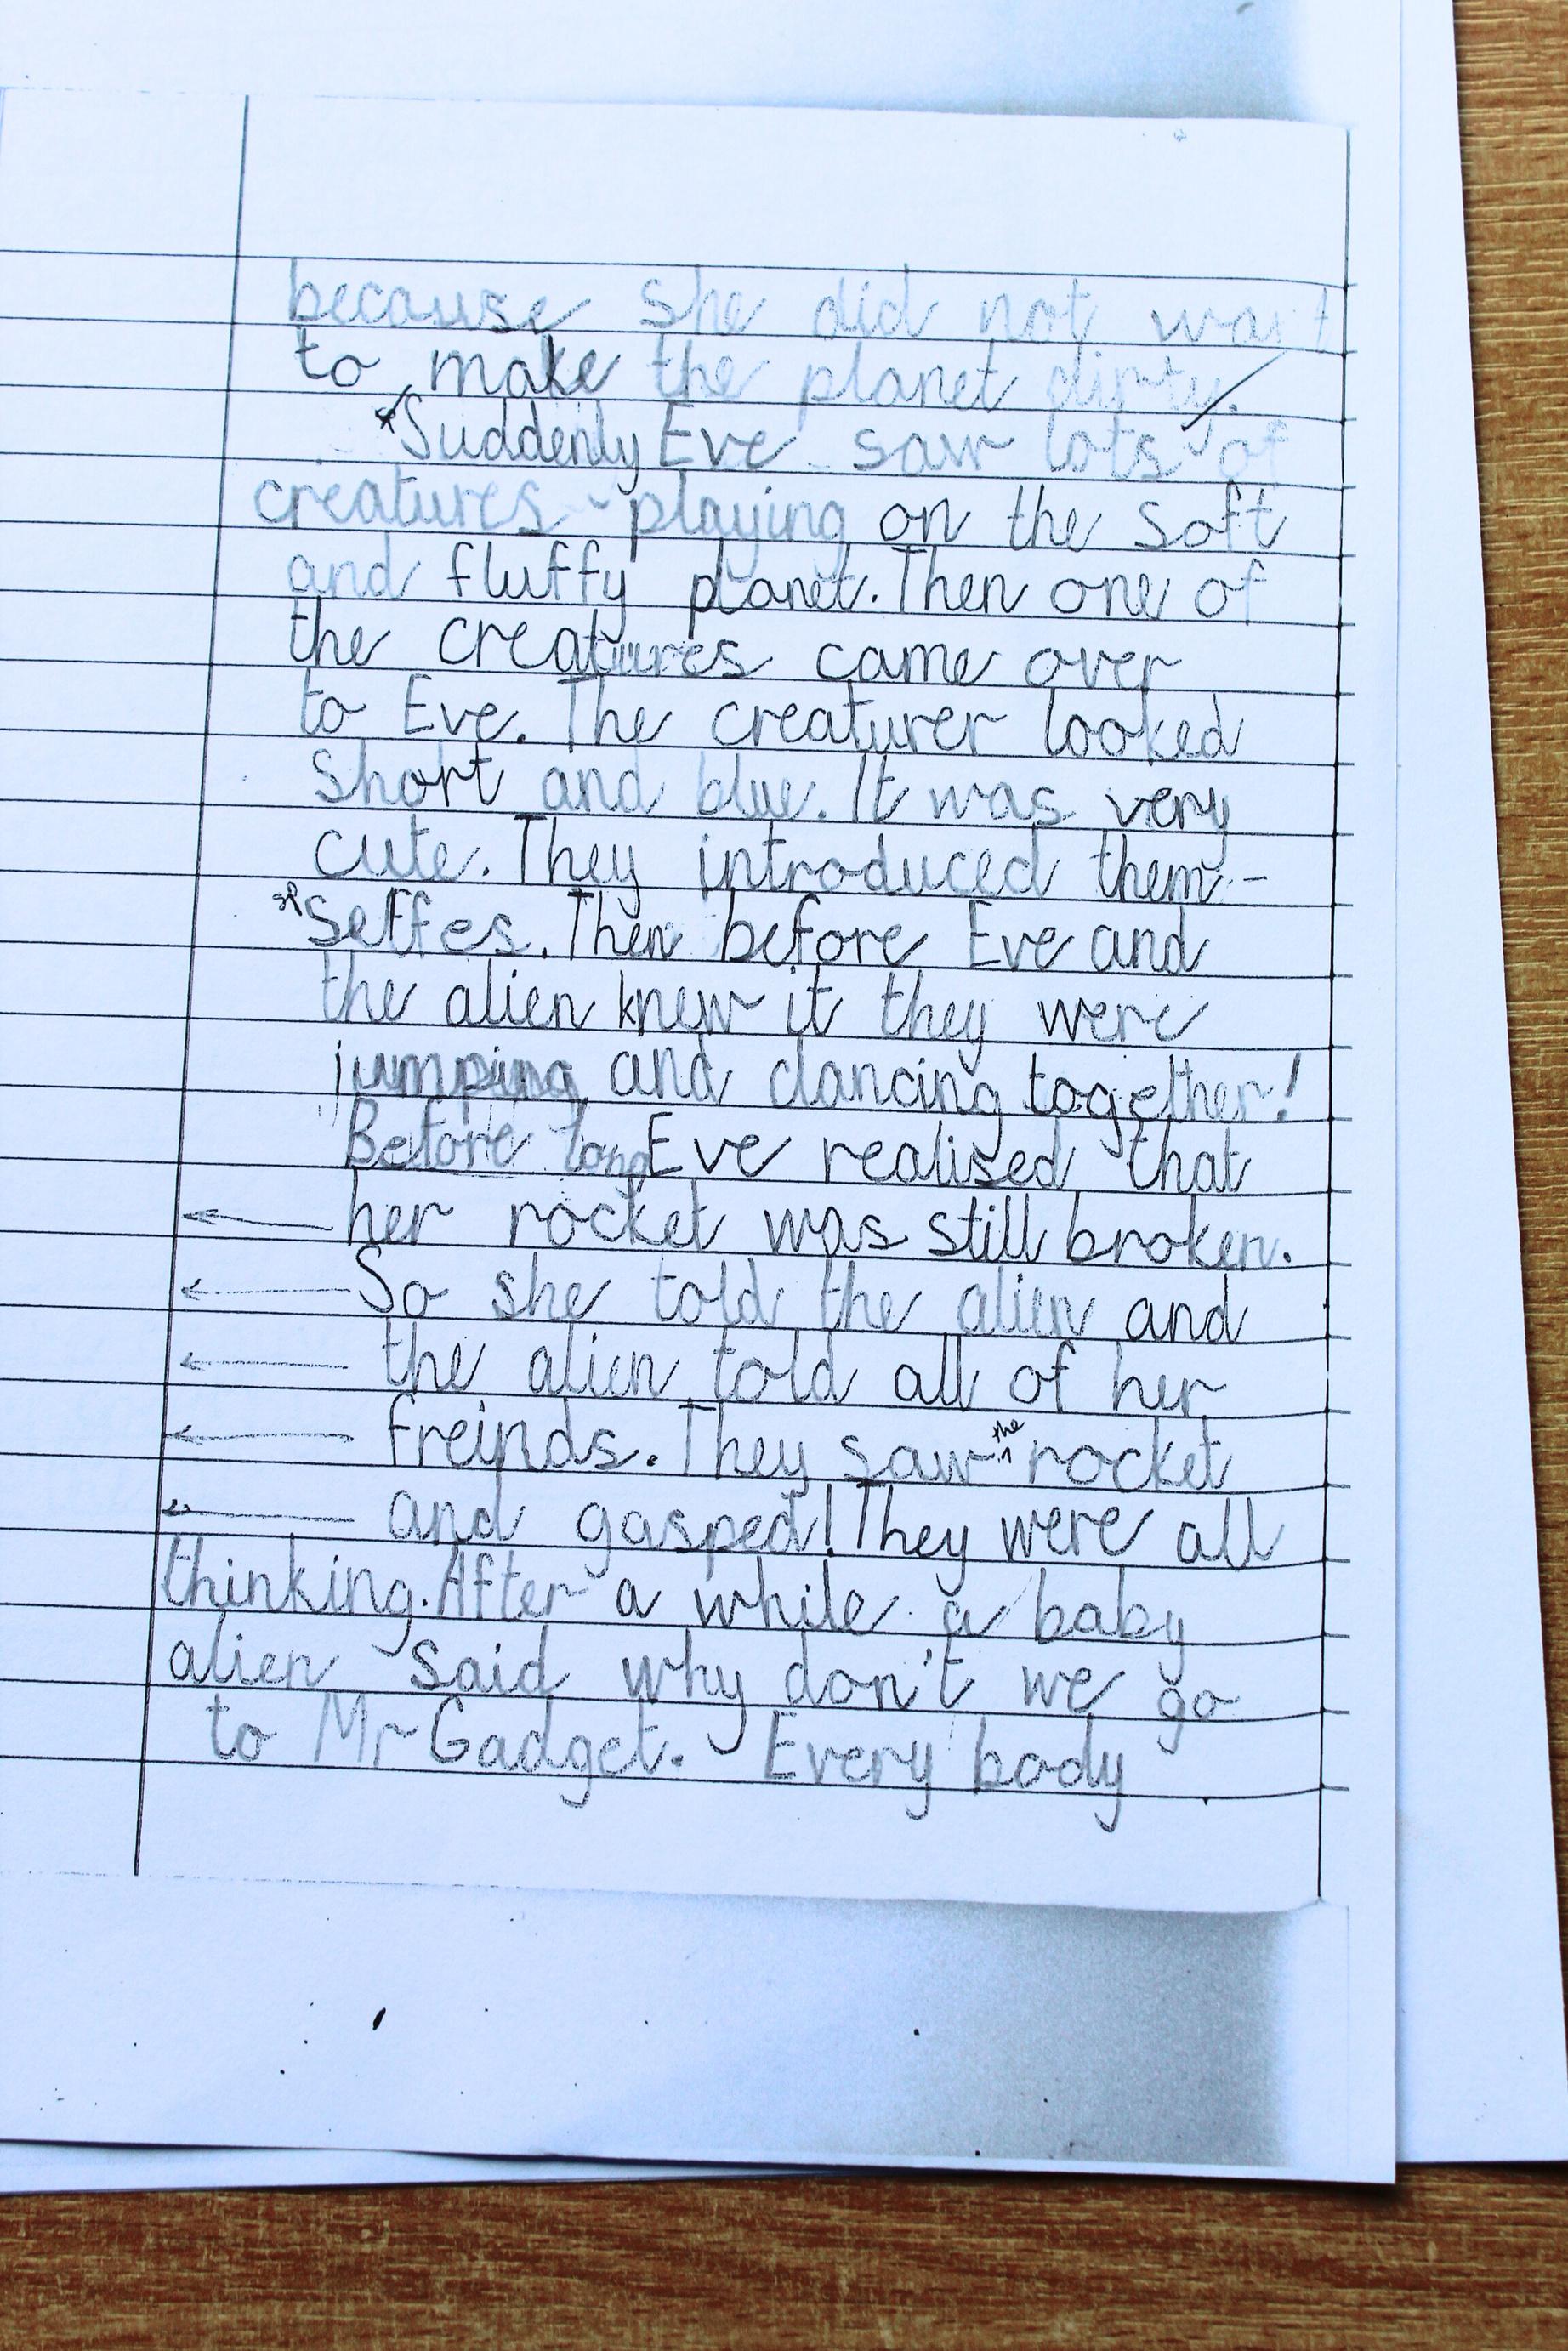 because she did not want
to make the planet dirty.
Suddenly Eve saw lots of
creatures playing on the soft
and fluffy planet. Then one of
the creatures came over
to Eve. The creaturer looked
short and blue. It was very
cute. They introduced them-
sp selffes. Then before Eve and
the alien knew it they were
jumping and dancing together!
Before long Eve realised that
her rocket was still broken.
So she told the alien and
the alien told all of her
freinds. They saw the rocket
and gasped! They were all
thinking. After a while a baby
alien said why don't we go
to Mr Gadget. Every body